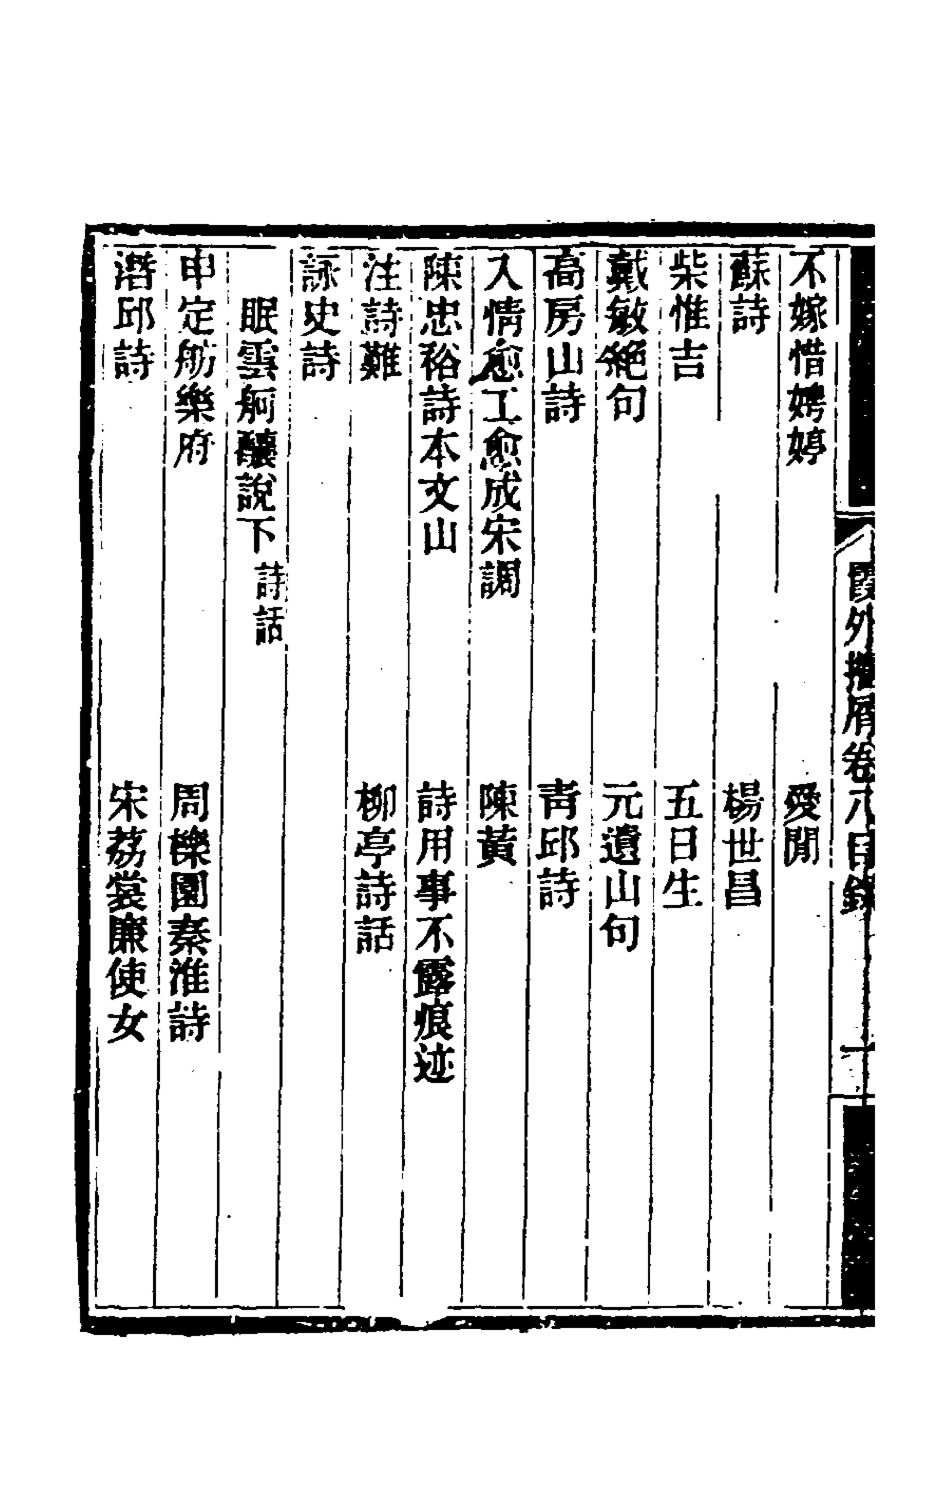 霞外攟屑卷八目錄
一
不嫁惜娉婷 愛閒
蘇詩 楊世昌
柴惟吉 五日生
戴敏絕句 元遺山句
高房山詩 青邱詩
入情愈工愈成宋調 陳黃
陳忠裕詩本文山 詩用事不露痕迹
注詩難 柳亭詩話
詠史詩
眠雲舸釀說下 詩話
申定舫樂府 周櫟園秦淮詩
潛邱詩 宋荔裳廉使女